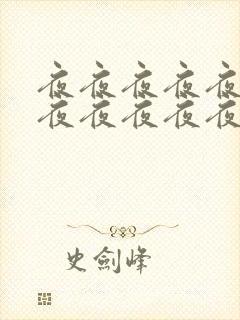 夜夜夜夜夜
夜夜夜夜夜
史劍峰